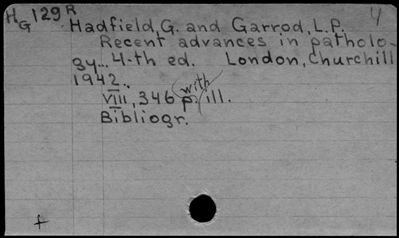 HG 129 R
4
Hadfield, G. and Garrod, L.P.
Recent advances in patholo-
gy... 4-th ed. London, Churchill
1942.
VIII, 346 p. with ill.
Bibliogr.
+